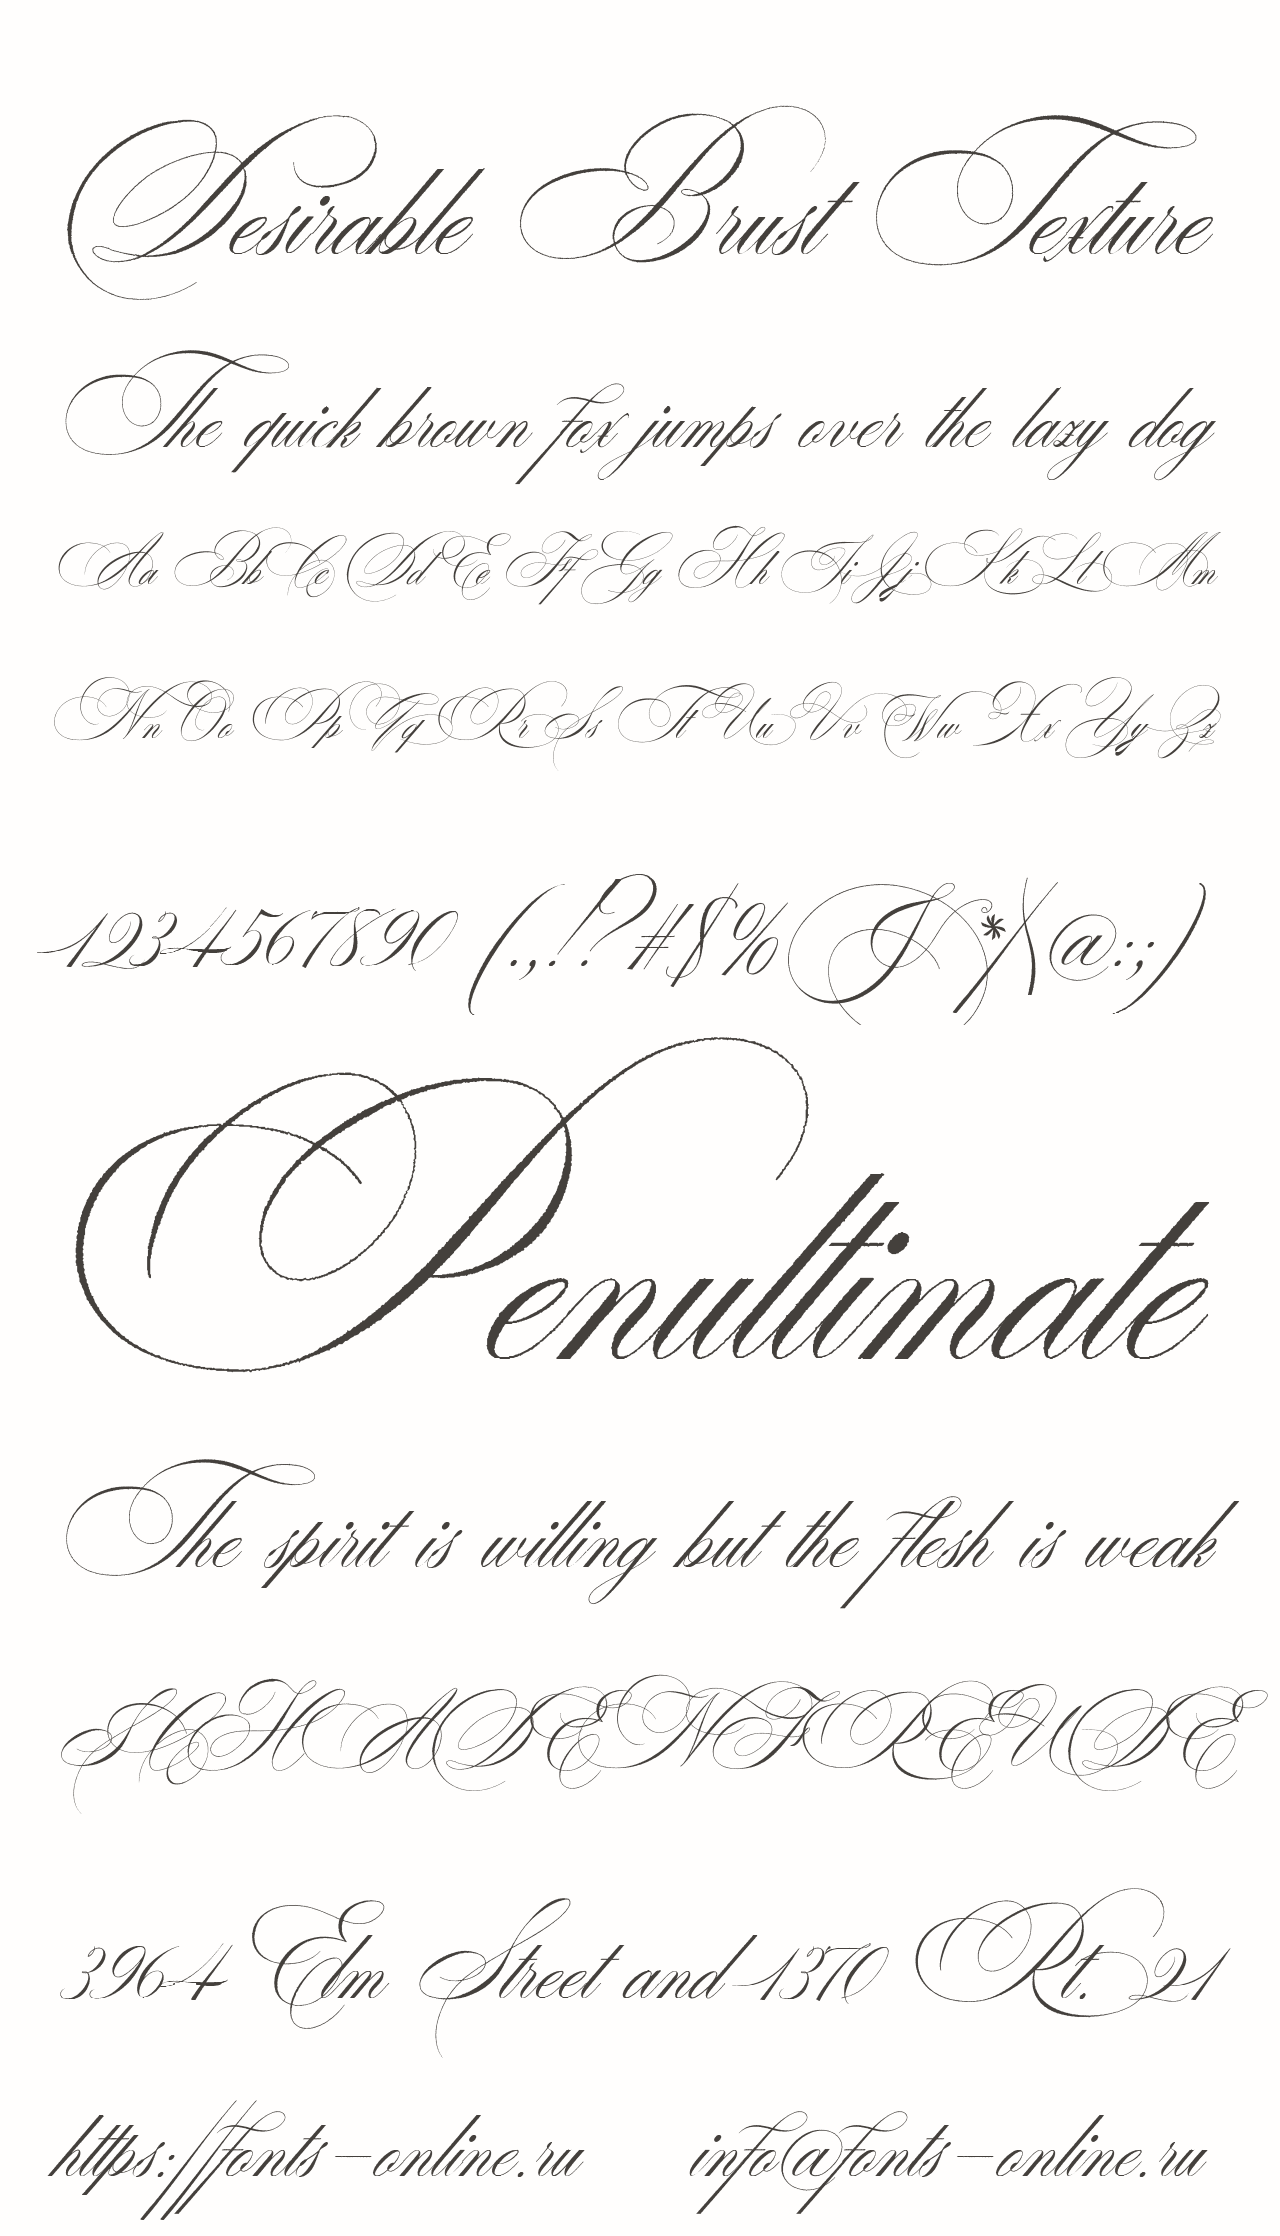 Desirable Brust Texture
The quick brown fox jumps over the lazy dog
Aa Bb Cc Dd Ee Ff Gg Hh Ii Jj Kk Ll Mm
Nn Oo Pp Qq Rr Ss Tt Uu Vv Ww Xx Yy Zz
1234567890 (.,!?#$%&*/\@:;)
Penultimate
The spirit is willing but the flesh is weak
SCHADENFREUDE
3964 Elm Street and 1370 Rt. 21
https://fonts-online.ru info@fonts-online.ru